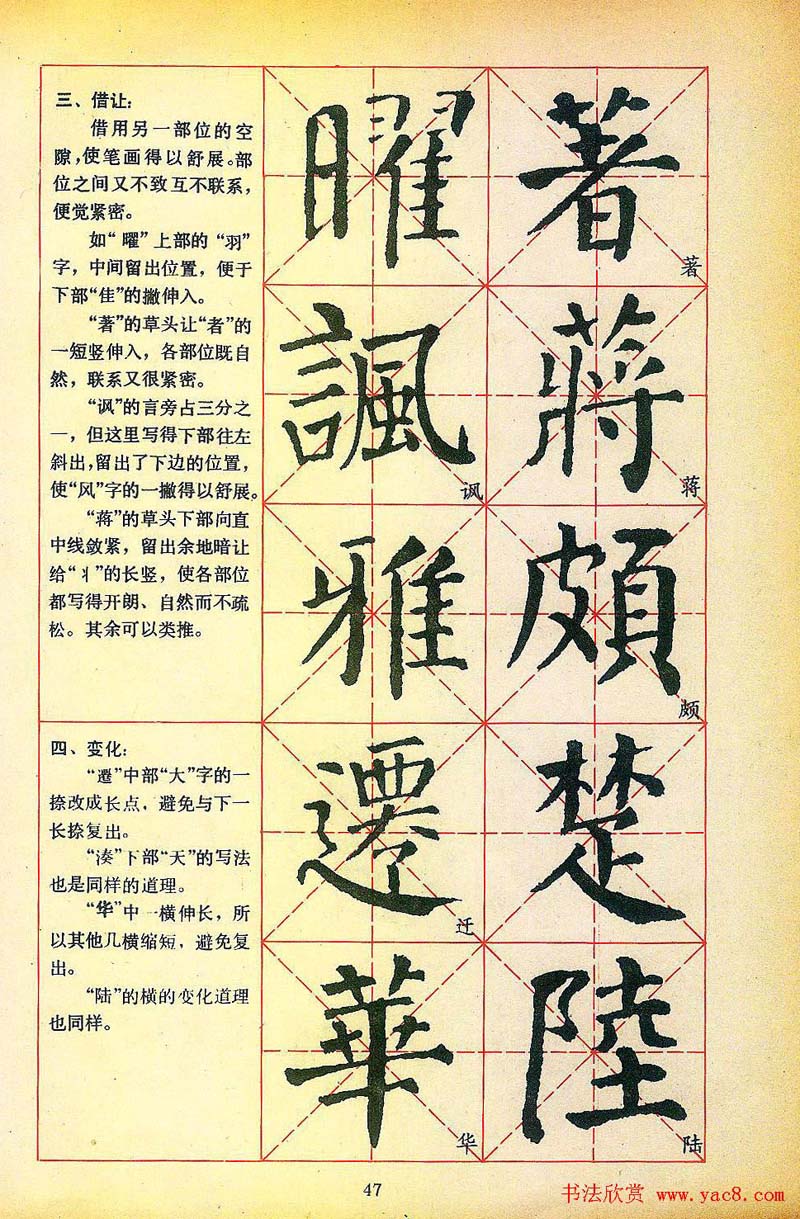 三、借让：
借用另一部位的空
隙，使笔画得以舒展。部
位之间又不致互不联系，
便觉紧密。
如“曜”上部的“羽”
字，中间留出位置，便于
下部“隹”的撇伸入。
“著”的草头让“者”的
一短竖伸入，各部位既自
然，联系又很紧密。
“讽”的言旁占三分之
一，但这里写得下部往左
斜出，留出了下边的位置，
使“风”字的一撇得以舒展。
“蒋”的草头下部向直
中线敛紧，留出余地暗让
给“丬”的长竖，使各部位
都写得开朗、自然而不疏
松。其余可以类推。
四、变化：
“遷”中部“大”字的一
捺改成长点，避免与下一
长捺复出。
“湊”下部“天”的写法
也是同样的道理。
“华”中一横伸长，所
以其他几横缩短，避免复
出。
“陆”的横的变化道理
也同样。
曜 著
著
諷 蔣
讽 蒋
雅 頗
颇
遷 楚
迁
華 陸
华 陆
47
书法欣赏 www.yac8.com